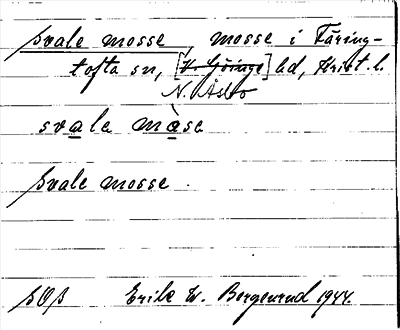 Svale mosse, mosse i Färing-
tofta sn, [V. Göinge] hd, Krist. l.
N. Åsbo
svale mòse
Svale mosse.
SOß Erik W. Bergenrud 1944.